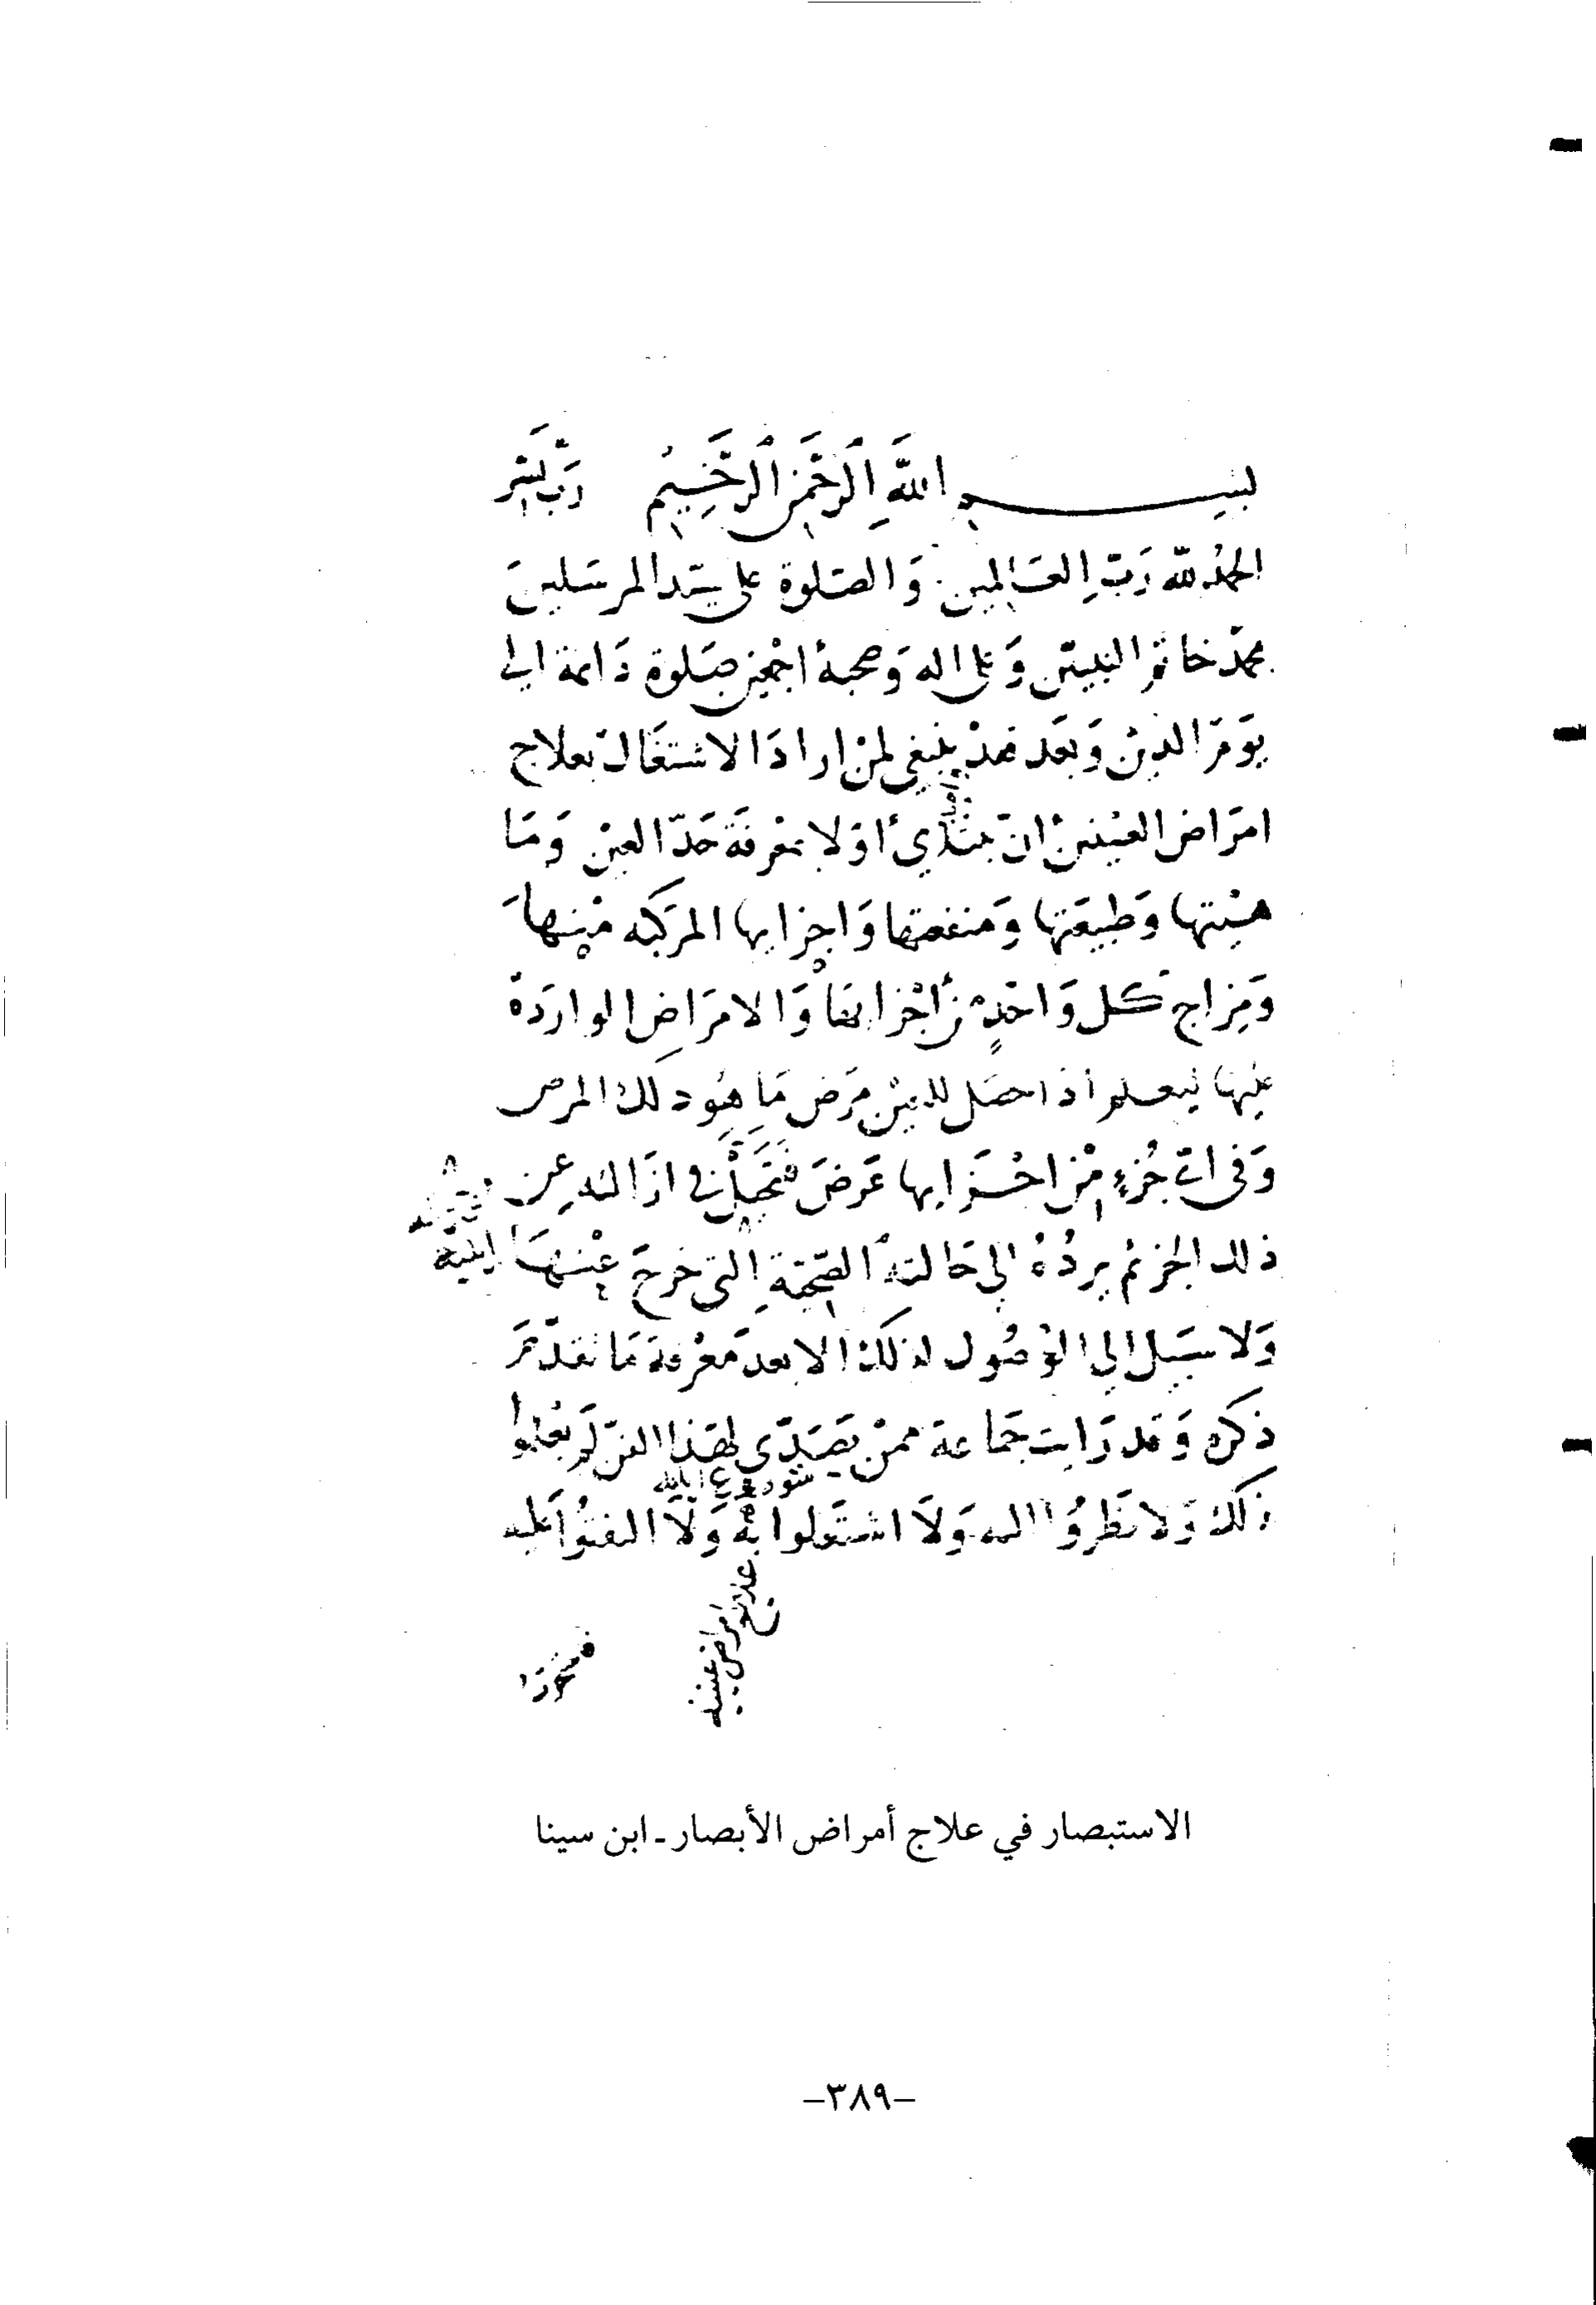 بسم اللَّهِ الرَّحْمَنِ الرَّحِيمِ رَبّ يَسّر
الحمدُ للّه رَبّ العَالمين وَالصّلوة على سيّد المرسَلينَ
محمّد خاتم النبيّين وَعلى اله وَصحبه اجمعين صَلوة دَائمة الى
يَومَ الدين وَبَعد فقد ينبغي لمن ارادَ الاشتغَال بعلاج
امرَاض العينين انّ يبتدي أوّلا بمعْرفَة حَدّ العين وَمَا
هيئتها وَطبيعَتها وَمنفعتها وَاجزايها المركبه منها
وَمِزاج كل وَاحَدٍ من أجْزائها وَالامرَاضِ الوارَدة
عليها ليعلم اذا حصَل للعين مرَض مَا هُو ذلك المرض
وَفى اىّ جُزءٍ من اجزَايها عَرضَ في ازَالته عن
ذلك الجزء بردّهُ الى حَالته الصّحيّةِ التى خرجَ عنها
وَلا سَبيل الى الوُصُول لذلك الا بعد مَعْرفة مَا تقدّمَ
ذكره وَقد رَايت جَماعة ممن تصَدّى لهَذا الفنّ لم يعلموا
ذلك وَلا نظرُوا اليه وَلَا اشتغلوا به وَلَا التفتوُا عليه
علاج امراض عينيه
الاستبصار في علاج أمراض الأبصار ـ ابن سينا
–٣٨٩–